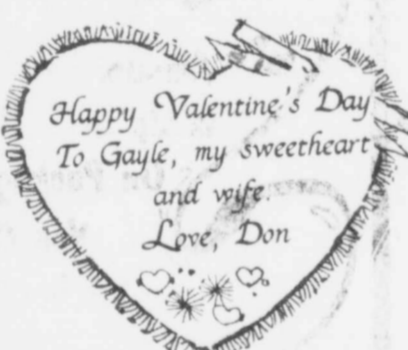 Happy Valentine's Day
To Gayle, my sweetheart
and wife.
Love, Don